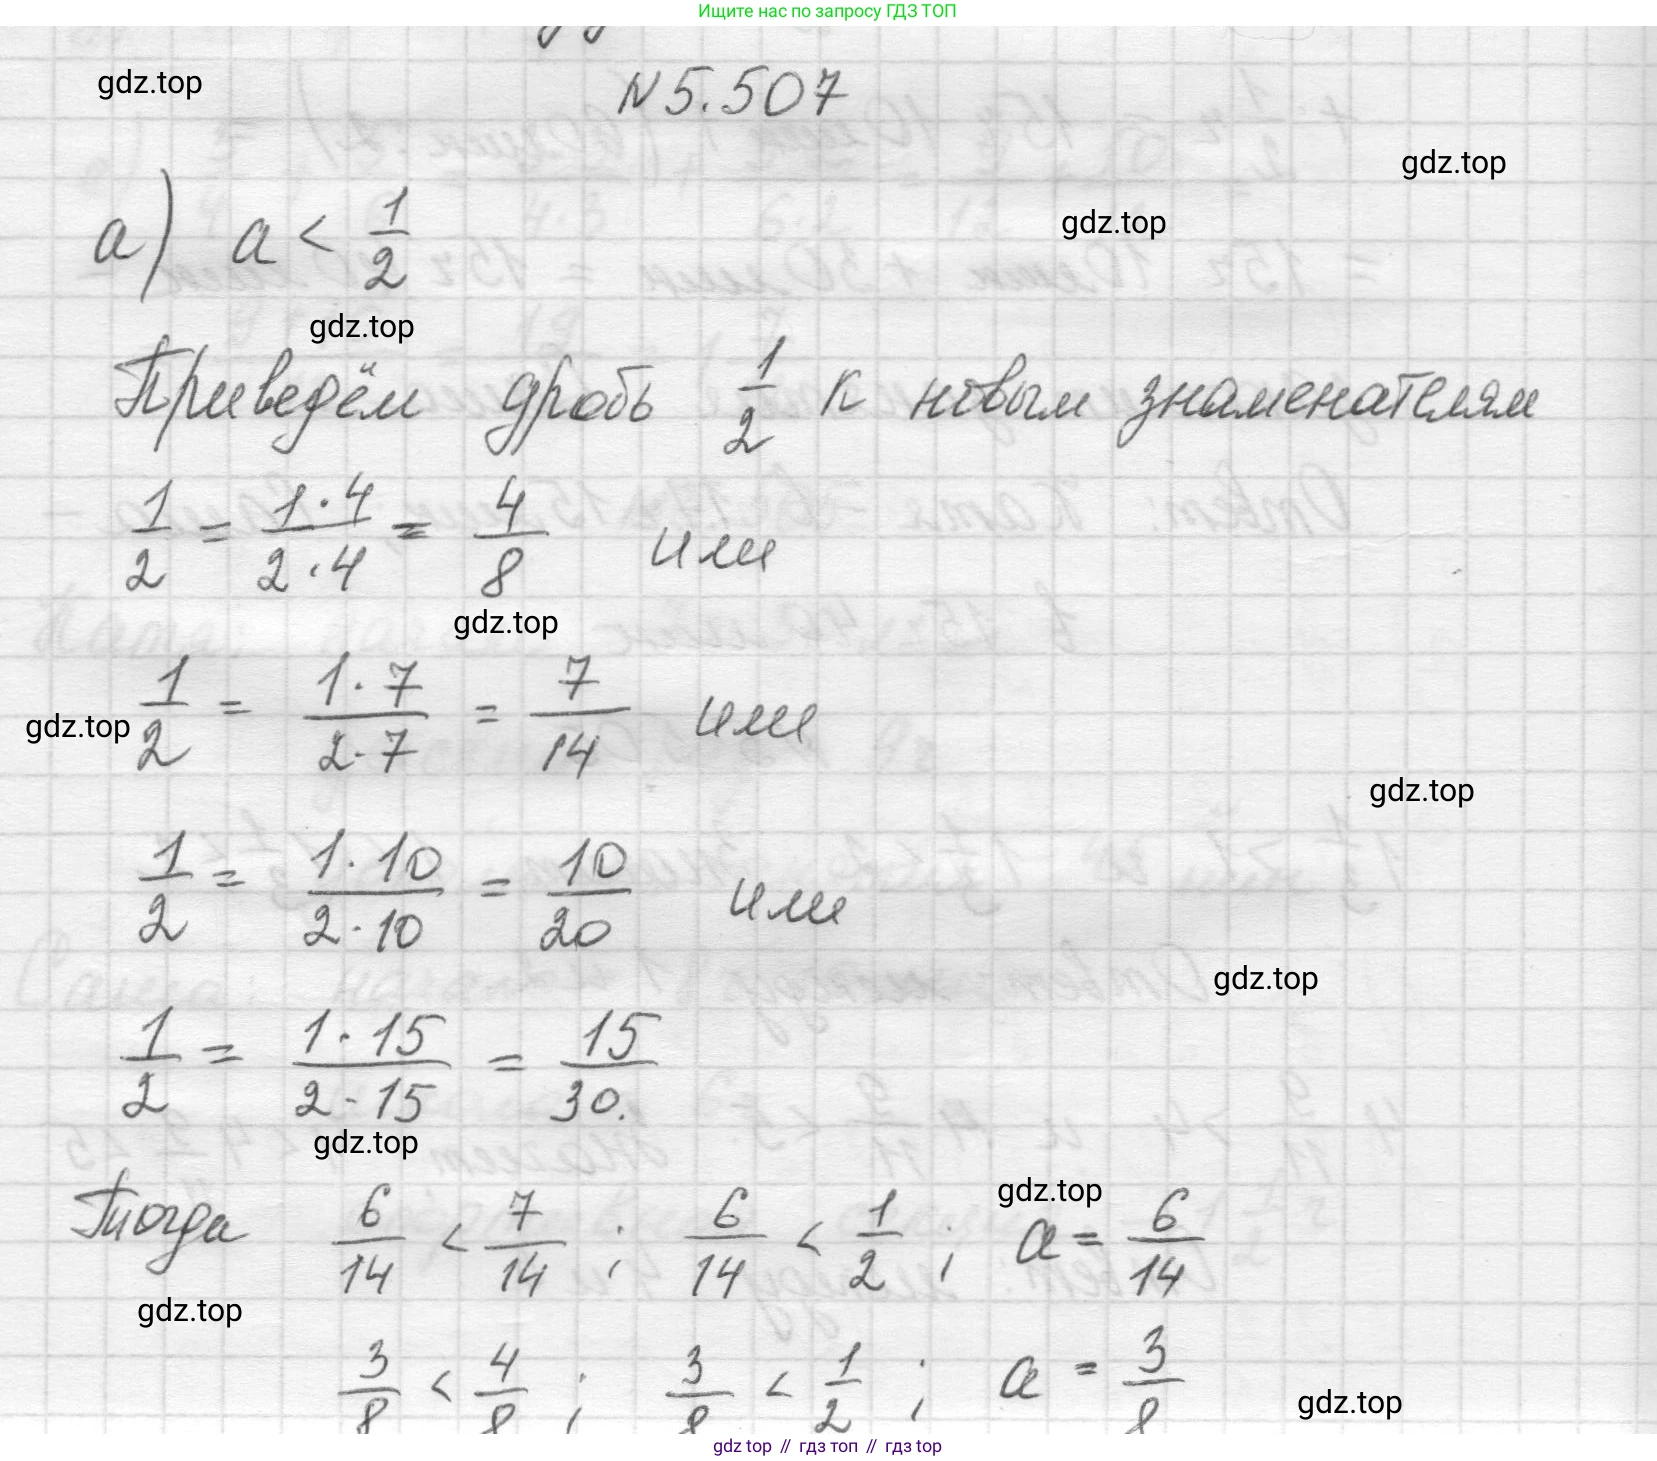 Ищите нас по запросу ГДЗ ТОП
gdz.top
N 5.507
gdz.top
а) a < 1/2
gdz.top
gdz.top
Приведём дробь 1/2 к новым знаменателям
1/2 = 1·4/2·4 = 4/8 или
gdz.top
1/2 = 1·7/2·7 = 7/14 или
gdz.top
gdz.top
1/2 = 1·10/2·10 = 10/20 или
gdz.top
1/2 = 1·15/2·15 = 15/30.
gdz.top
gdz.top
Тогда 6/14 < 7/14 ; 6/14 < 1/2 ; a = 6/14
gdz.top
3/8 < 4/8 ; 3/8 < 1/2 ; a = 3/8
gdz.top
gdz top // гдз топ // гдз top